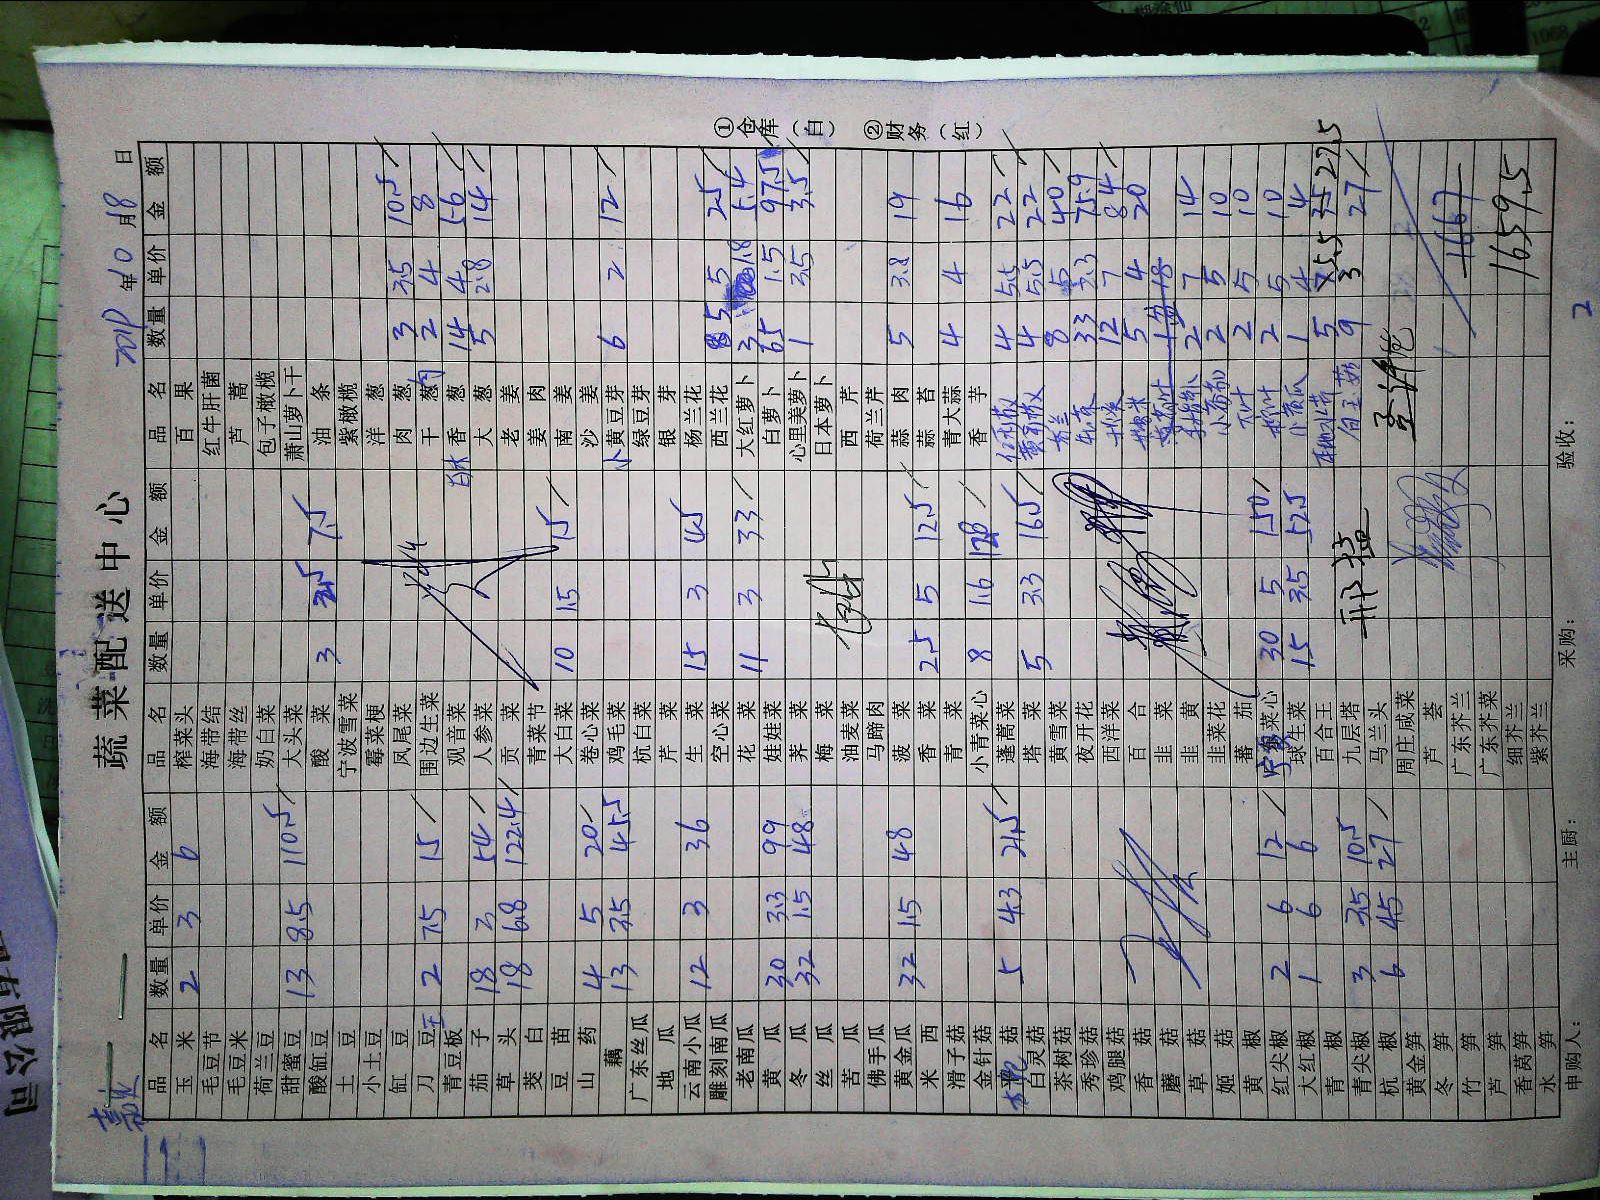 蔬菜配送中心
2019年10月18日
品名 数量 单价 金额 品名 数量 单价 金额 品名 数量 单价 金额
玉米 2 3 6 榨菜头 百果
毛豆节 海带结 红牛肝菌
毛豆米 海带丝 芦蒿
荷兰豆 奶白菜 包子橄榄
甜蜜豆 13 8.5 110.5 大头菜 萧山萝卜干
酸缸豆 酸菜 3 2.5 7.5 油条
土豆 宁波雪菜 紫橄榄
小土豆 霉菜梗 洋葱
缸豆 凤尾菜 肉葱 3 3.5 10.5
刀豆 2 7.5 15 围边生菜 干葱肉 2 4 8
青豆板 观音菜 香葱 14 4 56
茄子 18 3 54 人参菜 大葱 5 2.8 14
草头 18 6.8 122.4 贡菜 老姜
茭白 青菜节 姜肉
豆苗 大白菜 10 1.5 15 南姜
山药 4 5 20 卷心菜 沙姜
藕 13 3.5 45.5 鸡毛菜 小黄豆芽 6 2 12
广东丝瓜 杭白菜 绿豆芽
地瓜 芹菜 银芽
云南小瓜 12 3 36 生菜 15 3 45 杨兰花
雕刻南瓜 空心菜 西兰花 5 5 25
老南瓜 花菜 11 3 33 大红萝卜 3 1.8 5.4
黄瓜 30 3.3 99 娃娃菜 白萝卜 65 1.5 97.5
冬瓜 32 1.5 48 荠菜 心里美萝卜 1 3.5 3.5
丝瓜 梅菜 日本萝卜
苦瓜 油麦菜 西芹
佛手瓜 马蹄肉 荷兰芹
黄金瓜 32 1.5 48 菠菜 蒜肉 5 3.8 19
米西 香菜 2.5 5 12.5 蒜苔
滑子菇 青菜 青大蒜 4 4 16
金针菇 小青菜心 8 16 128 香芋
菇 5 4.3 21.5 蓬蒿菜 4 5.5 22
白灵菇 塔菜 5 3.3 16.5 黄彩椒 4 5.5 22
茶树菇 黄雪菜 芥兰 8 5 40
秀珍菇 夜开花 33 2.3 75.9
鸡腿菇 西洋菜 12 7 84
香菇 百合 5 4 20
蘑菇 韭菜
草菇 韭黄 2 7 14
姬菇 韭菜花 2 5 10
黄椒 蕃茄 2 5 10
红尖椒 2 6 12 菜心 30 5 150 2 5 10
大红椒 1 6 6 球生菜 15 3.5 52.5 小黄瓜 1 4 4
青椒 百合王 5 5.5 27.5
青尖椒 3 3.5 10.5 九层塔 白玉菇 9 3 27
杭椒 6 4.5 27 马兰头
黄金笋 周庄咸菜
冬笋 芦荟
竹笋 广东芥兰 1667
芦笋 广东芥菜
香莴笋 细芥兰 1659.5
水笋 紫芥兰
申购人： 主厨： 采购： 验收：
①仓库（白） ②财务（红）
2
有限公司